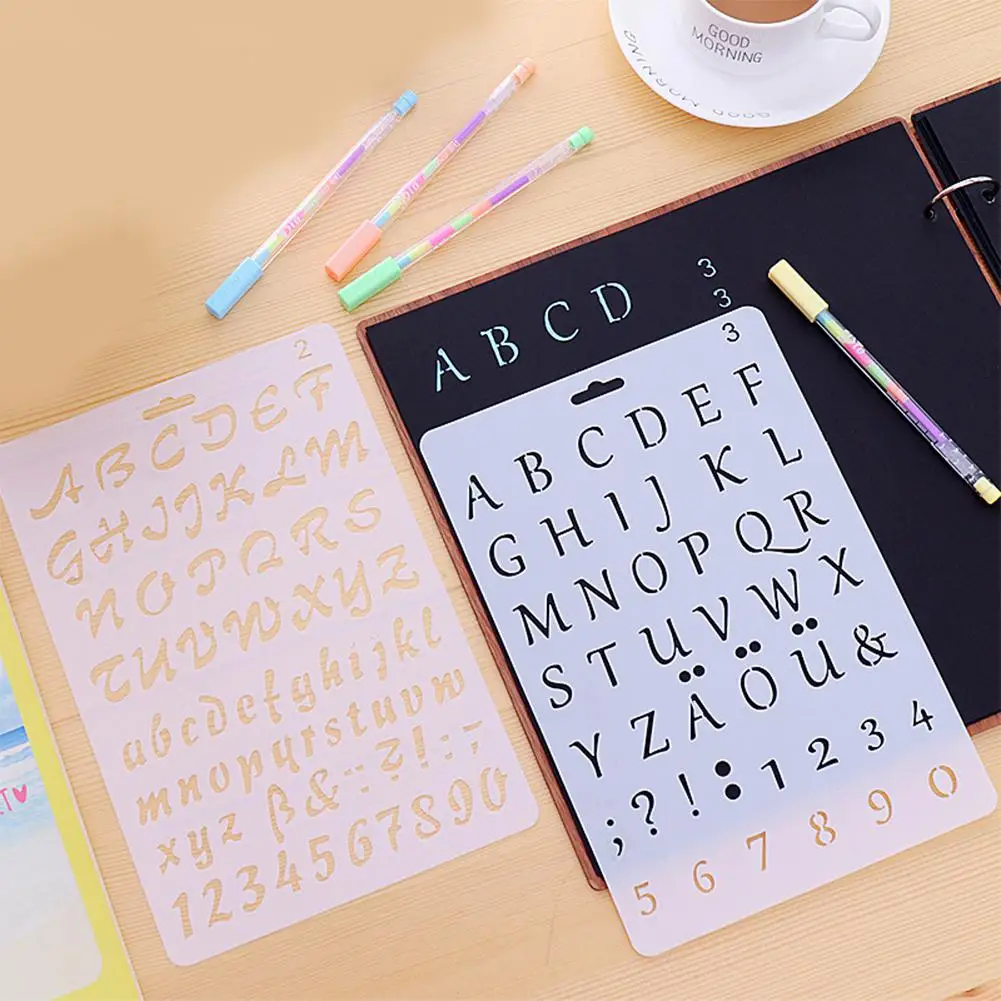 GOOD
MORNING
GOOD MORNING
3
3
A B C D
3
A B C D E F
G H I J K L
M N O P Q R
S T U V W X
Y Z Ä Ö Ü &
; ? ! : 1 2 3 4
5 6 7 8 9 0
2
A B C D E F
G H I J K L M
N O P Q R S
T U V W X Y Z
a b c d e f g h i j k l
m n o p q r s t u v w
x y z ß & : - ? ! : ; -
1 2 3 4 5 6 7 8 9 0